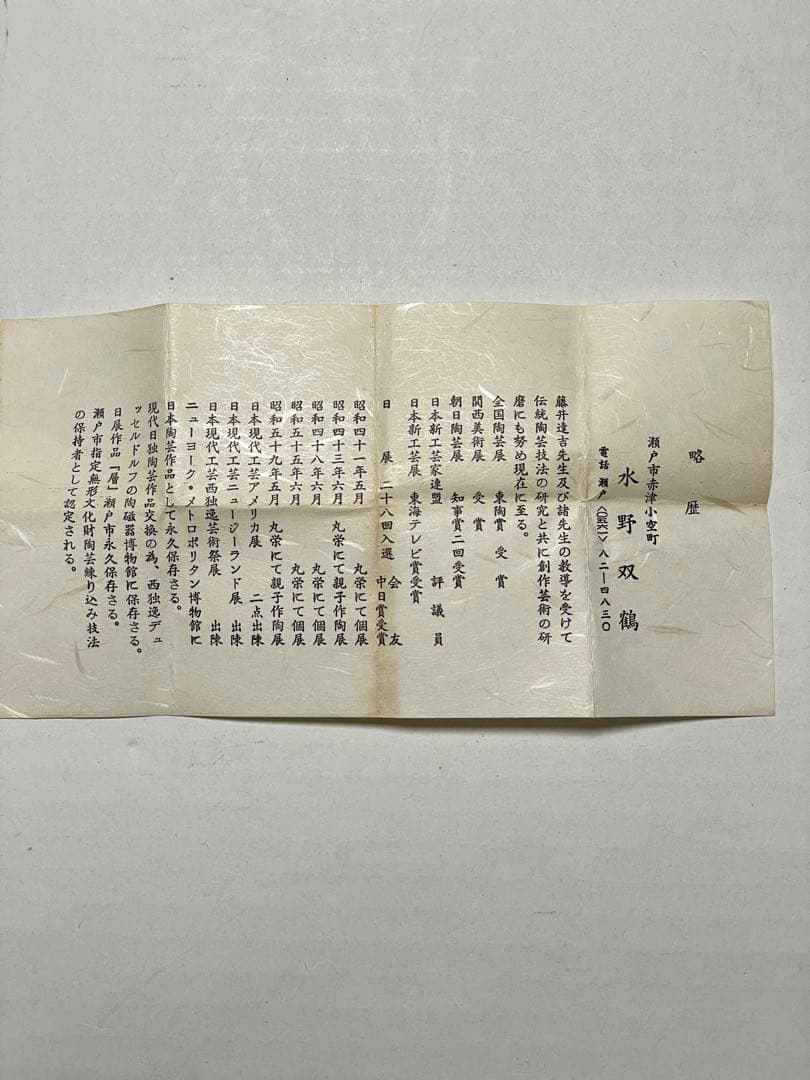 略歴
瀬戸市赤津小空町
水野双鶴
電話 瀬戸〈〇五六一〉八二―四八三〇
藤井達吉先生及び諸先生の教導を受けて
伝統陶芸技法の研究と共に創作芸術の研
磨にも努め現在に至る。
全国陶芸展 東陶賞 受賞
関西美術展 受賞
朝日陶芸展 知事賞二回受賞
日本新工芸家連盟 評議員
日本新工芸展 東海テレビ賞受賞
日展 二十八回入選 会友
中日賞受賞
昭和四十一年五月 丸栄にて個展
昭和四十三年六月 丸栄にて親子作陶展
昭和四十八年六月 丸栄にて個展
昭和五十五年六月 丸栄にて個展
昭和五十九年五月 丸栄にて親子作陶展
日本現代工芸アメリカ展 二点出陳
日本現代工芸ニュージーランド展 出陳
日本現代工芸西独逸芸術祭展 出陳
ニューヨーク・メトロポリタン博物館に
日本陶芸作品として永久保存さる。
現代日独陶芸作品交換の為、西独逸デュ
ッセルドルフの陶磁器博物館に保存さる。
日展作品「層」瀬戸市永久保存さる。
瀬戸市指定無形文化財陶芸練り込み技法
の保持者として認定される。